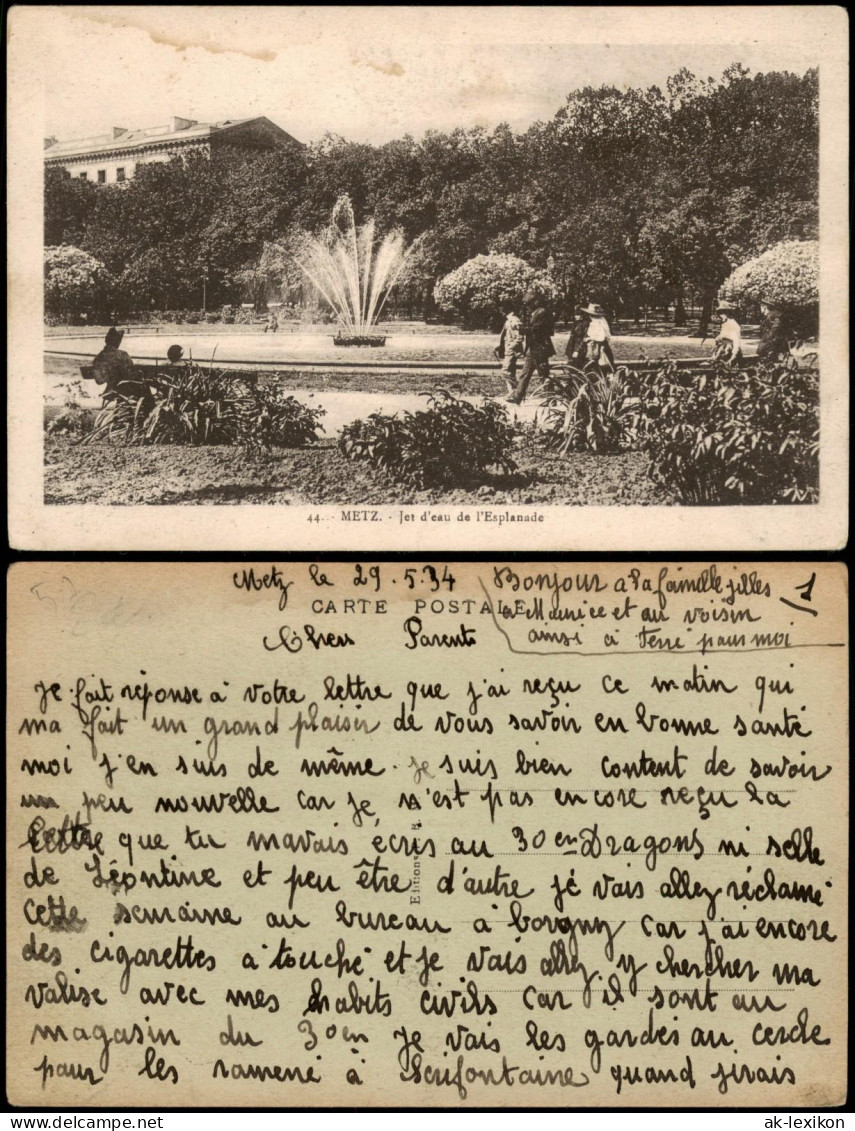 44. - METZ. - Jet d'eau de l'Esplanade
Metz le 29.5.34
Bonjour a la famille jilles
a Maurice et au voisin
ainsi à pour moi
1
CARTE POSTALE
Chers Parents
Je fait réponse à votre lettre que j'ai reçu ce matin qui
ma fait un grand plaisir de vous savoir en bonne santé
moi j'en suis de même. je suis bien content de savoir
un peu nouvelle car je n'est pas encore reçu la
lettre que tu mavais écris au 30en Dragons ni selle
de Léontine et peu être d'autre je vais allez réclamé
cette semaine au bureau à borgny car j'ai encore
des cigarettes à touché et je vais allez y chercher ma
valise avec mes habits civils car il sont au
magasin du 30en je vais les gardes au cercle
pour les ramené à Serifontaine quand jirais
Editions
ak-lexikon